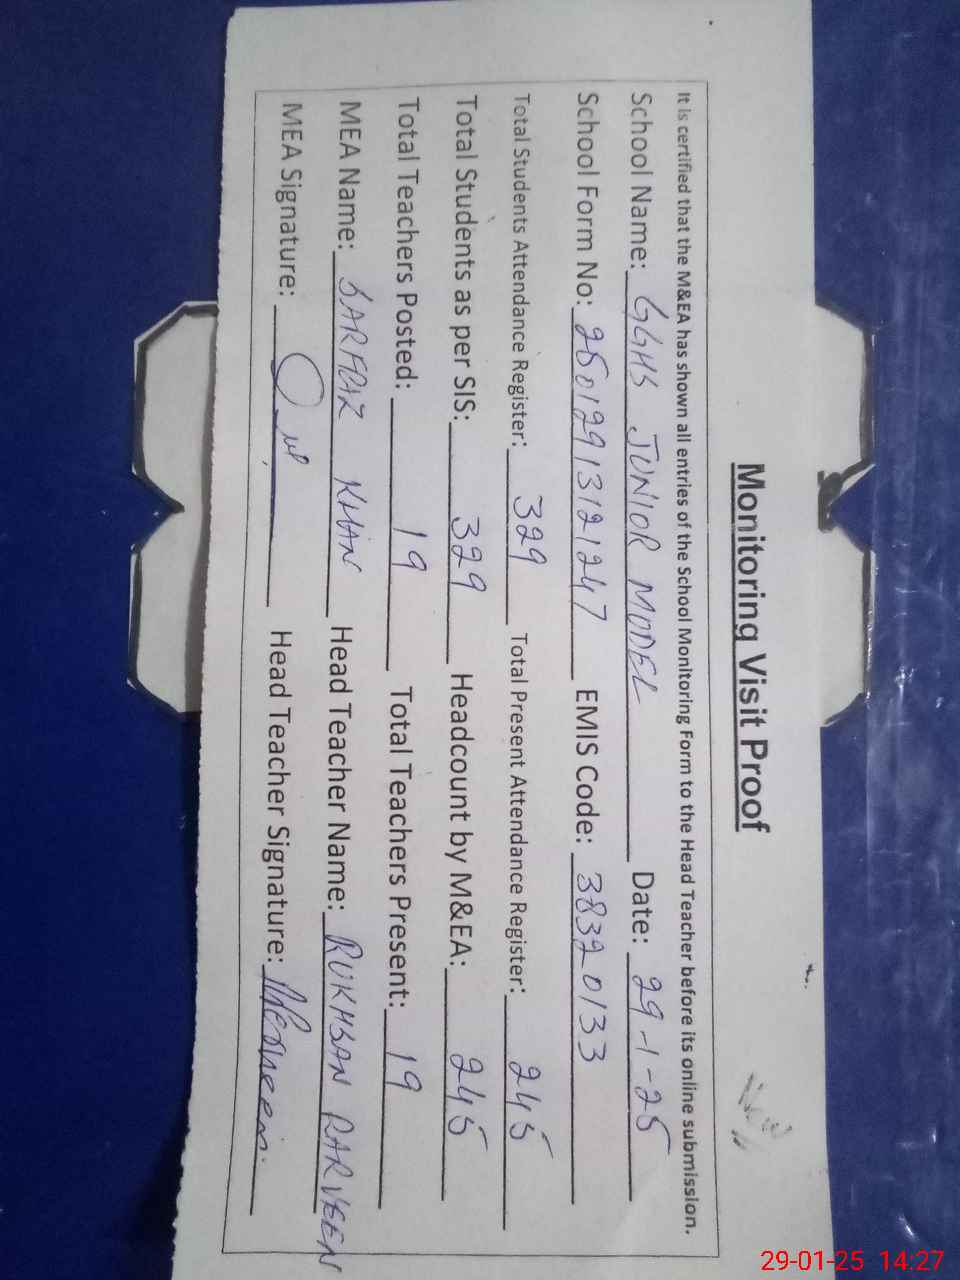 Monitoring Visit Proof
It is certified that the M&EA has shown all entries of the School Monitoring Form to the Head Teacher before its online submission.
School Name: GGHS JUNIOR MODEL Date: 29-1-25
School Form No: 25012913121247 EMIS Code: 38320133
Total Students Attendance Register: 329 Total Present Attendance Register: 245
Total Students as per SIS: 329 Headcount by M&EA: 245
Total Teachers Posted: 19 Total Teachers Present: 19
MEA Name: SARFRAZ KHAN Head Teacher Name: RUKHSAN PARVEEN
MEA Signature: Head Teacher Signature:
29-01-25 14:27